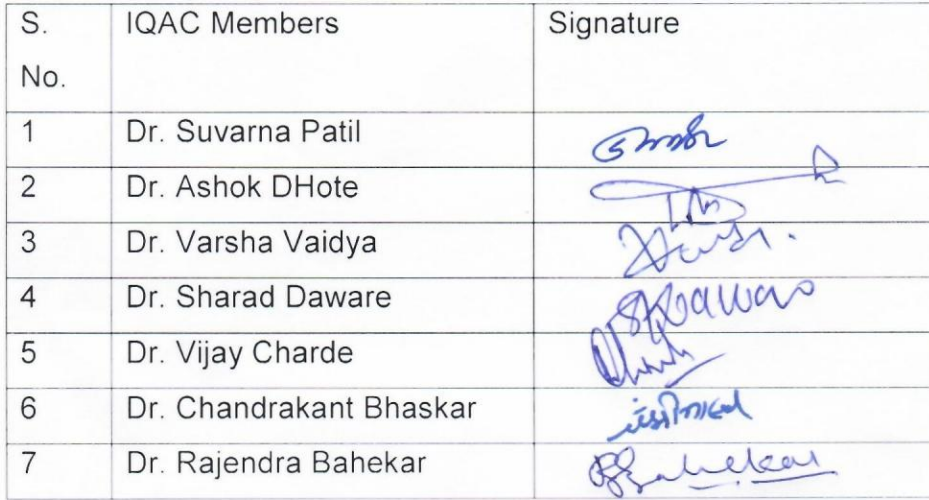 S. No. IQAC Members Signature
1 Dr. Suvarna Patil
2 Dr. Ashok DHote
3 Dr. Varsha Vaidya
4 Dr. Sharad Daware
5 Dr. Vijay Charde
6 Dr. Chandrakant Bhaskar
7 Dr. Rajendra Bahekar